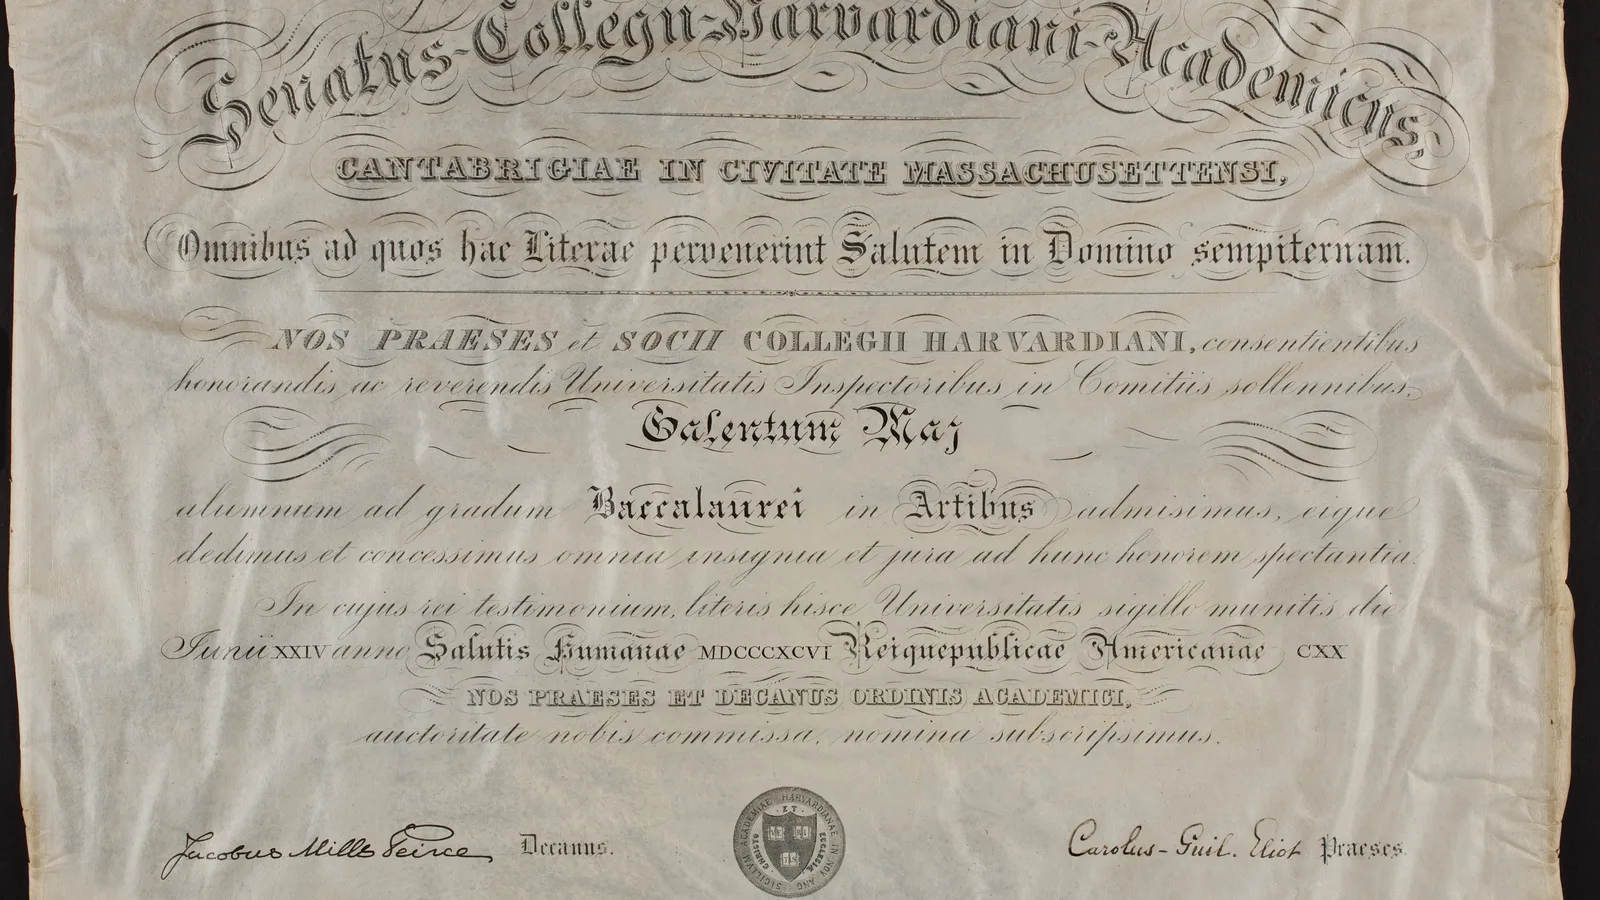 Senatus-Collegii-Harvardiani-Academicus,
CANTABRIGIAE IN CIVITATE MASSACHUSETTENSI,
Omnibus ad quos hae Literae pervenerint Salutem in Domino sempiternam.
NOS PRAESES et SOCII COLLEGII HARVARDIANI, consentientibus
honorandis ac reverendis Universitatis Inspectoribus in Comitiis sollennibus,
Galentum Maj
alumnum ad gradum Baccalaurei in Artibus admisimus, eique
dedimus et concessimus omnia insignia et jura ad hunc honorem spectantia.
In cujus rei testimonium, literis hisce Universitatis sigillo munitis die
Junii XXIV anno Salutis Humanae MDCCCXCVI Reiquepublicae Americanae CXX
NOS PRAESES ET DECANUS ORDINIS ACADEMICI,
auctoritate nobis commissa, nomina subscripsimus.
Jacobus Mills Peirce Decanus.
SIGILLVM ACADEMIAE HARVARDIANAE IN NOV ANG
CHRISTO ET ECCLESIAE
VE RI
TAS
Carolus-Guil. Eliot Praeses